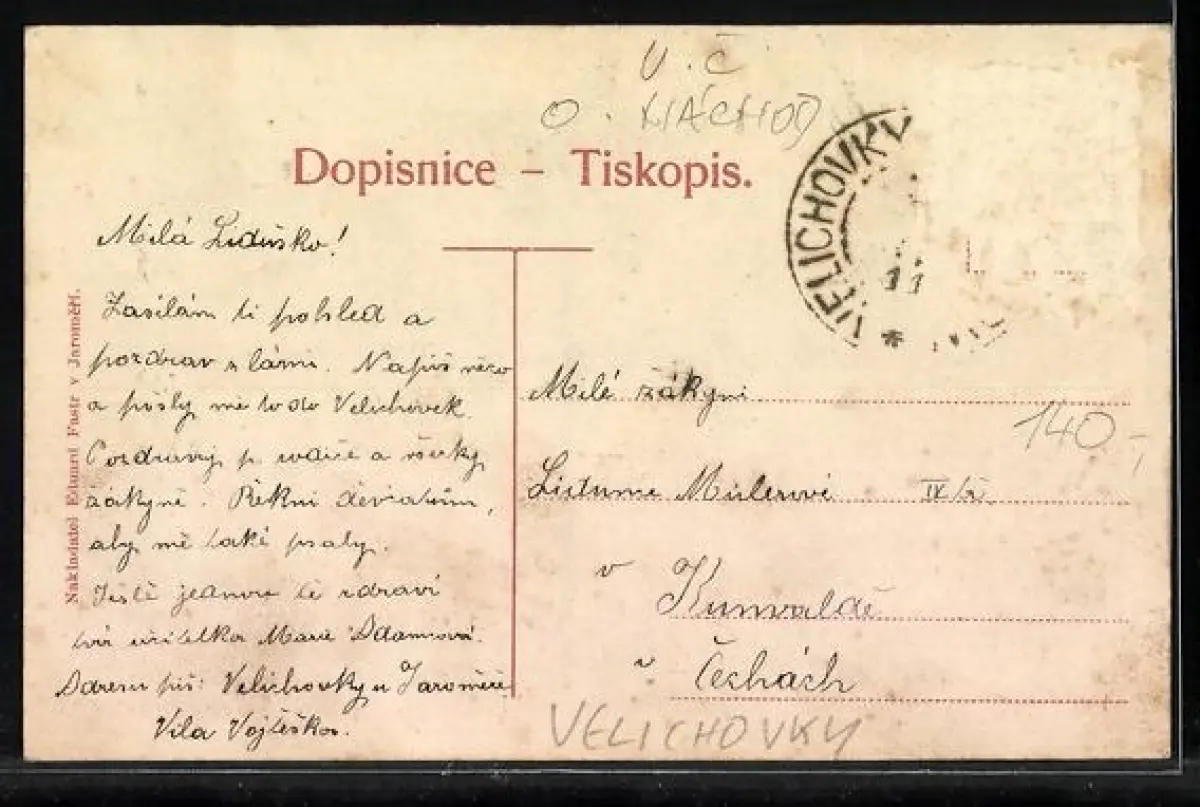 V. Č
O. NÁCHOD
Dopisnice – Tiskopis.
VELICHOVKY
11
Milá Liduško!
Zasílám ti pohled a
pozdrav z lázní. Napiš něco
a pošly mě to do Velichovek.
Pozdravuj p. rodiče a všecky
žákyně. Řekni děvčatům,
aby mě také psaly.
Ještě jednou tě zdraví
tvá učitelka Marie Adamcová.
Adresu piš: Velichovky u Jaroměře
Vila Vojtěška.
Nakladatel Eduard Fastr v Jaroměři.
Milé žákyni
140,-
Lidume Mislerové IV/ř.
v Kunvaldě
v Čechách
VELICHOVKY